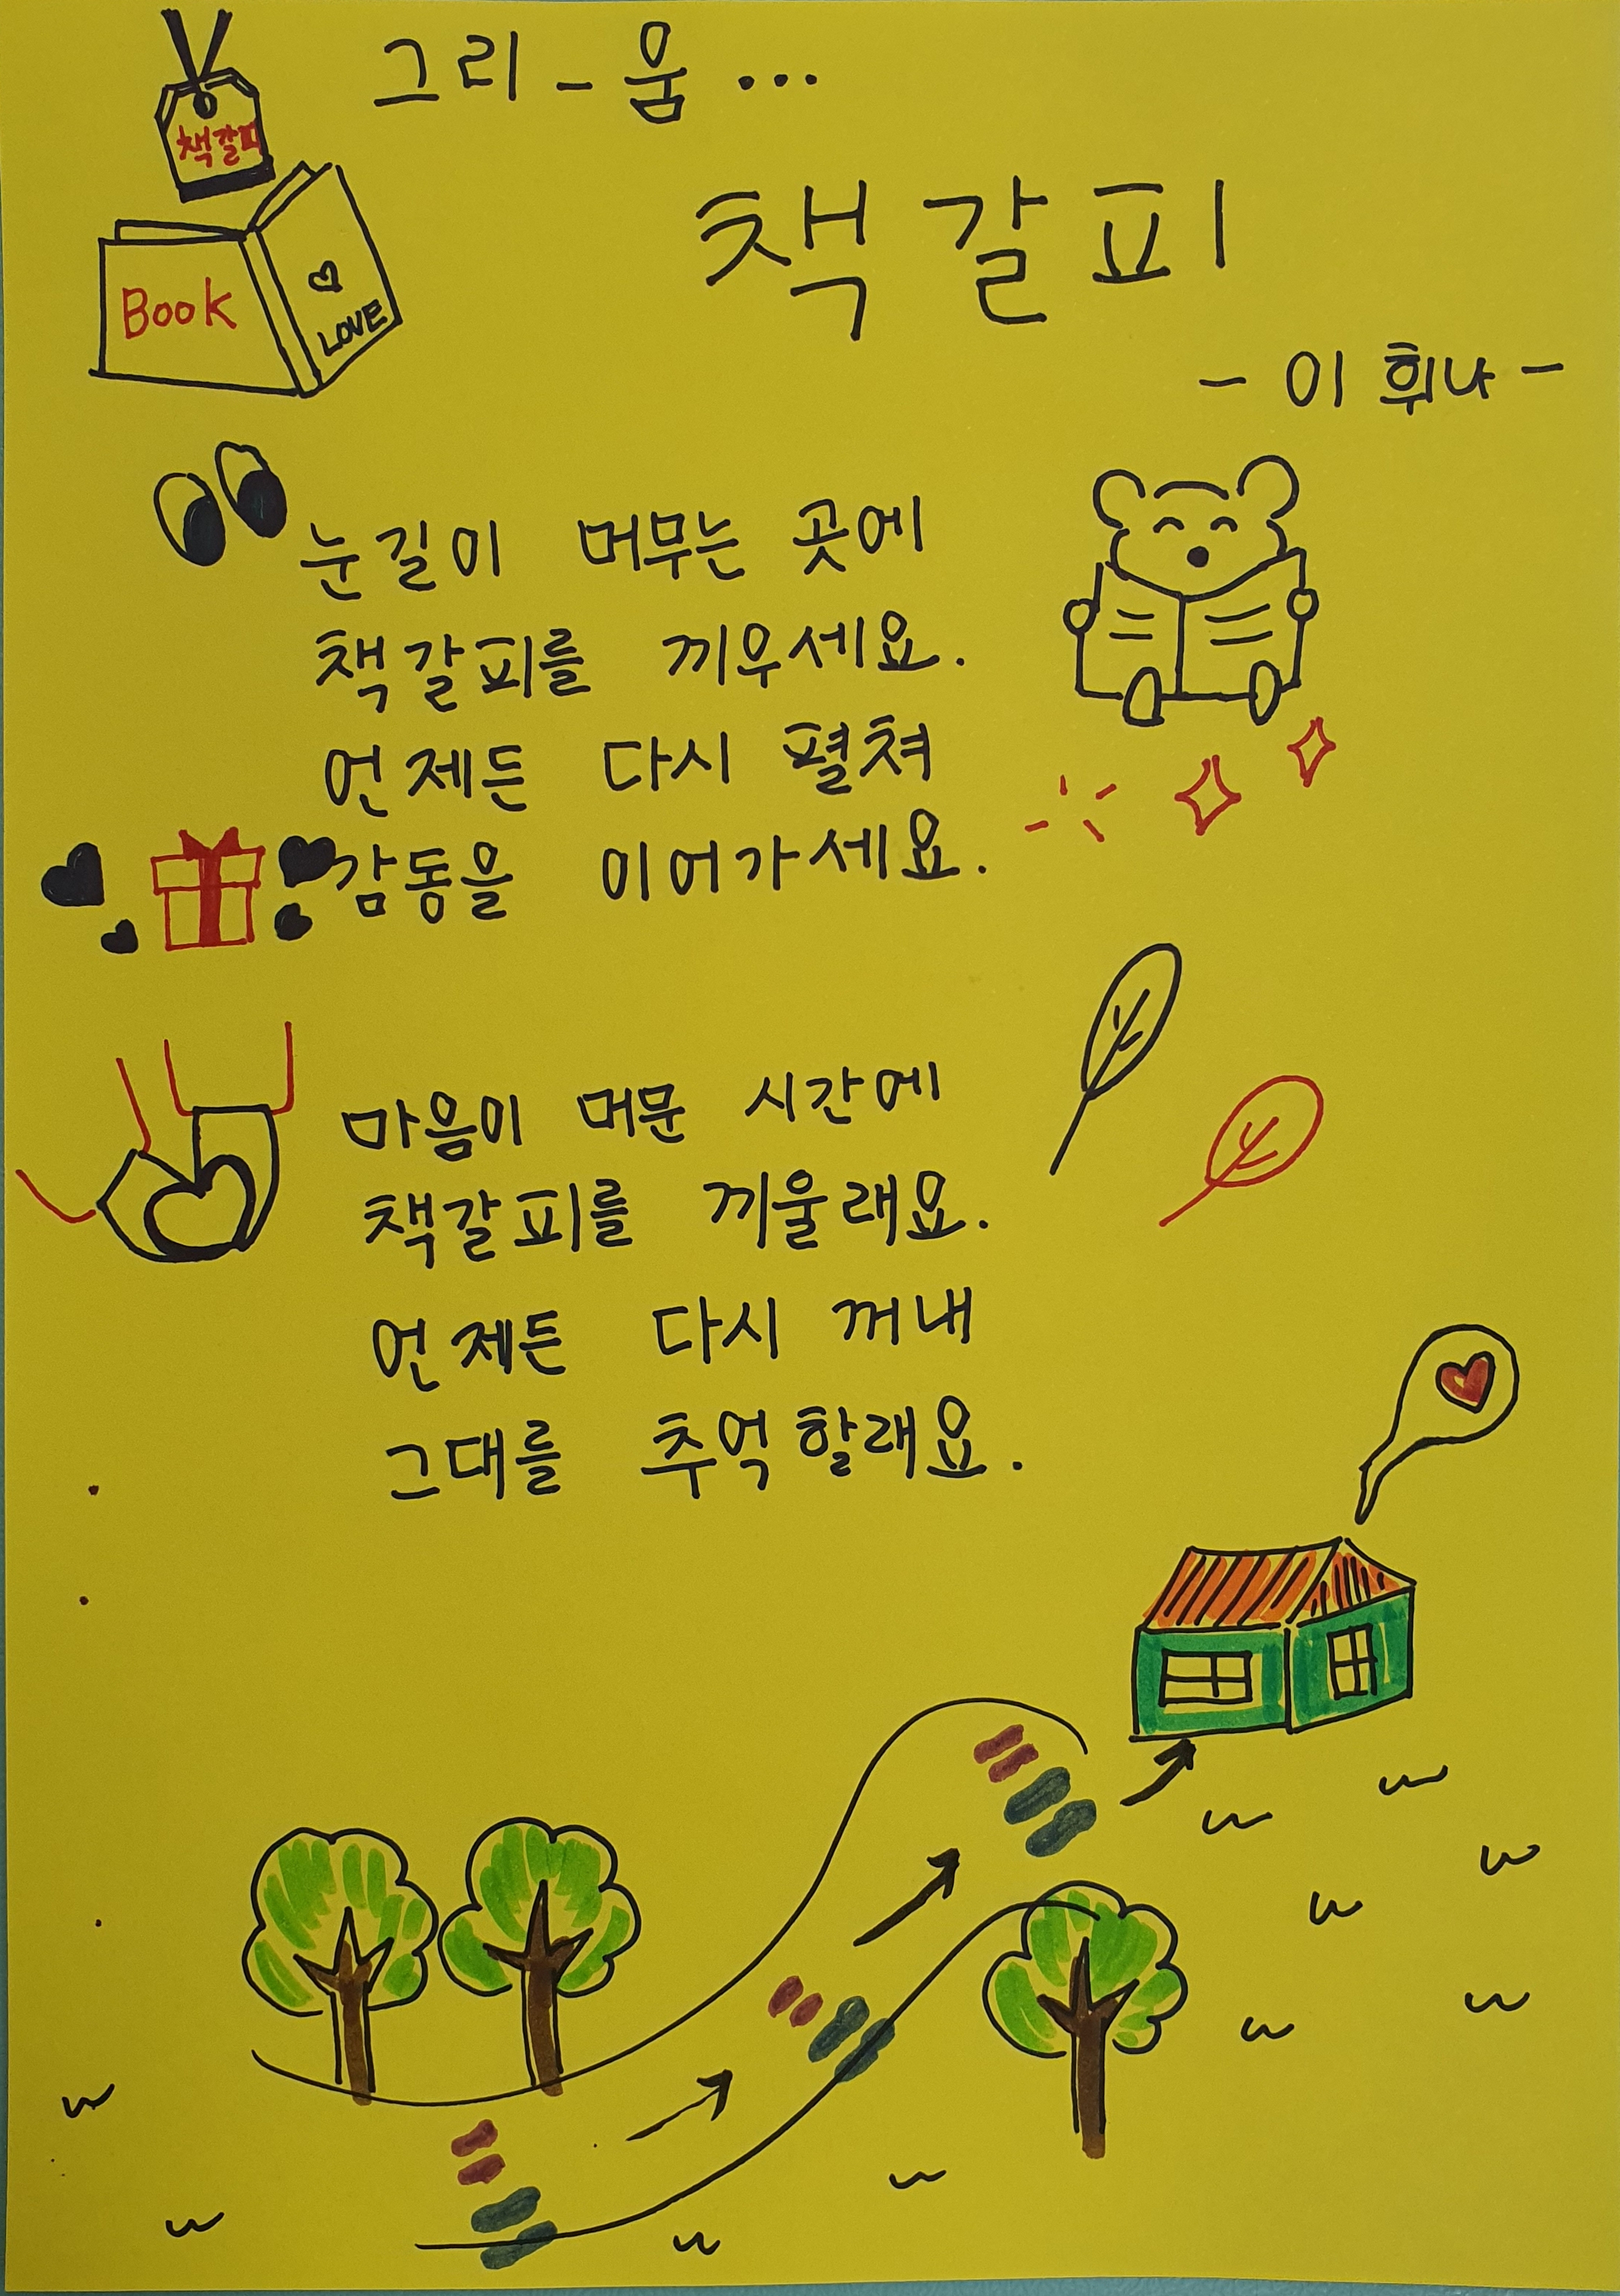 그리-움...
책갈피
책갈피
Book
LOVE
- 이휘나 -
눈길이 머무는 곳에
책갈피를 끼우세요.
언제든 다시 펼쳐
감동을 이어가세요.
마음이 머문 시간에
책갈피를 끼울래요.
언제든 다시 꺼내
그대를 추억할래요.